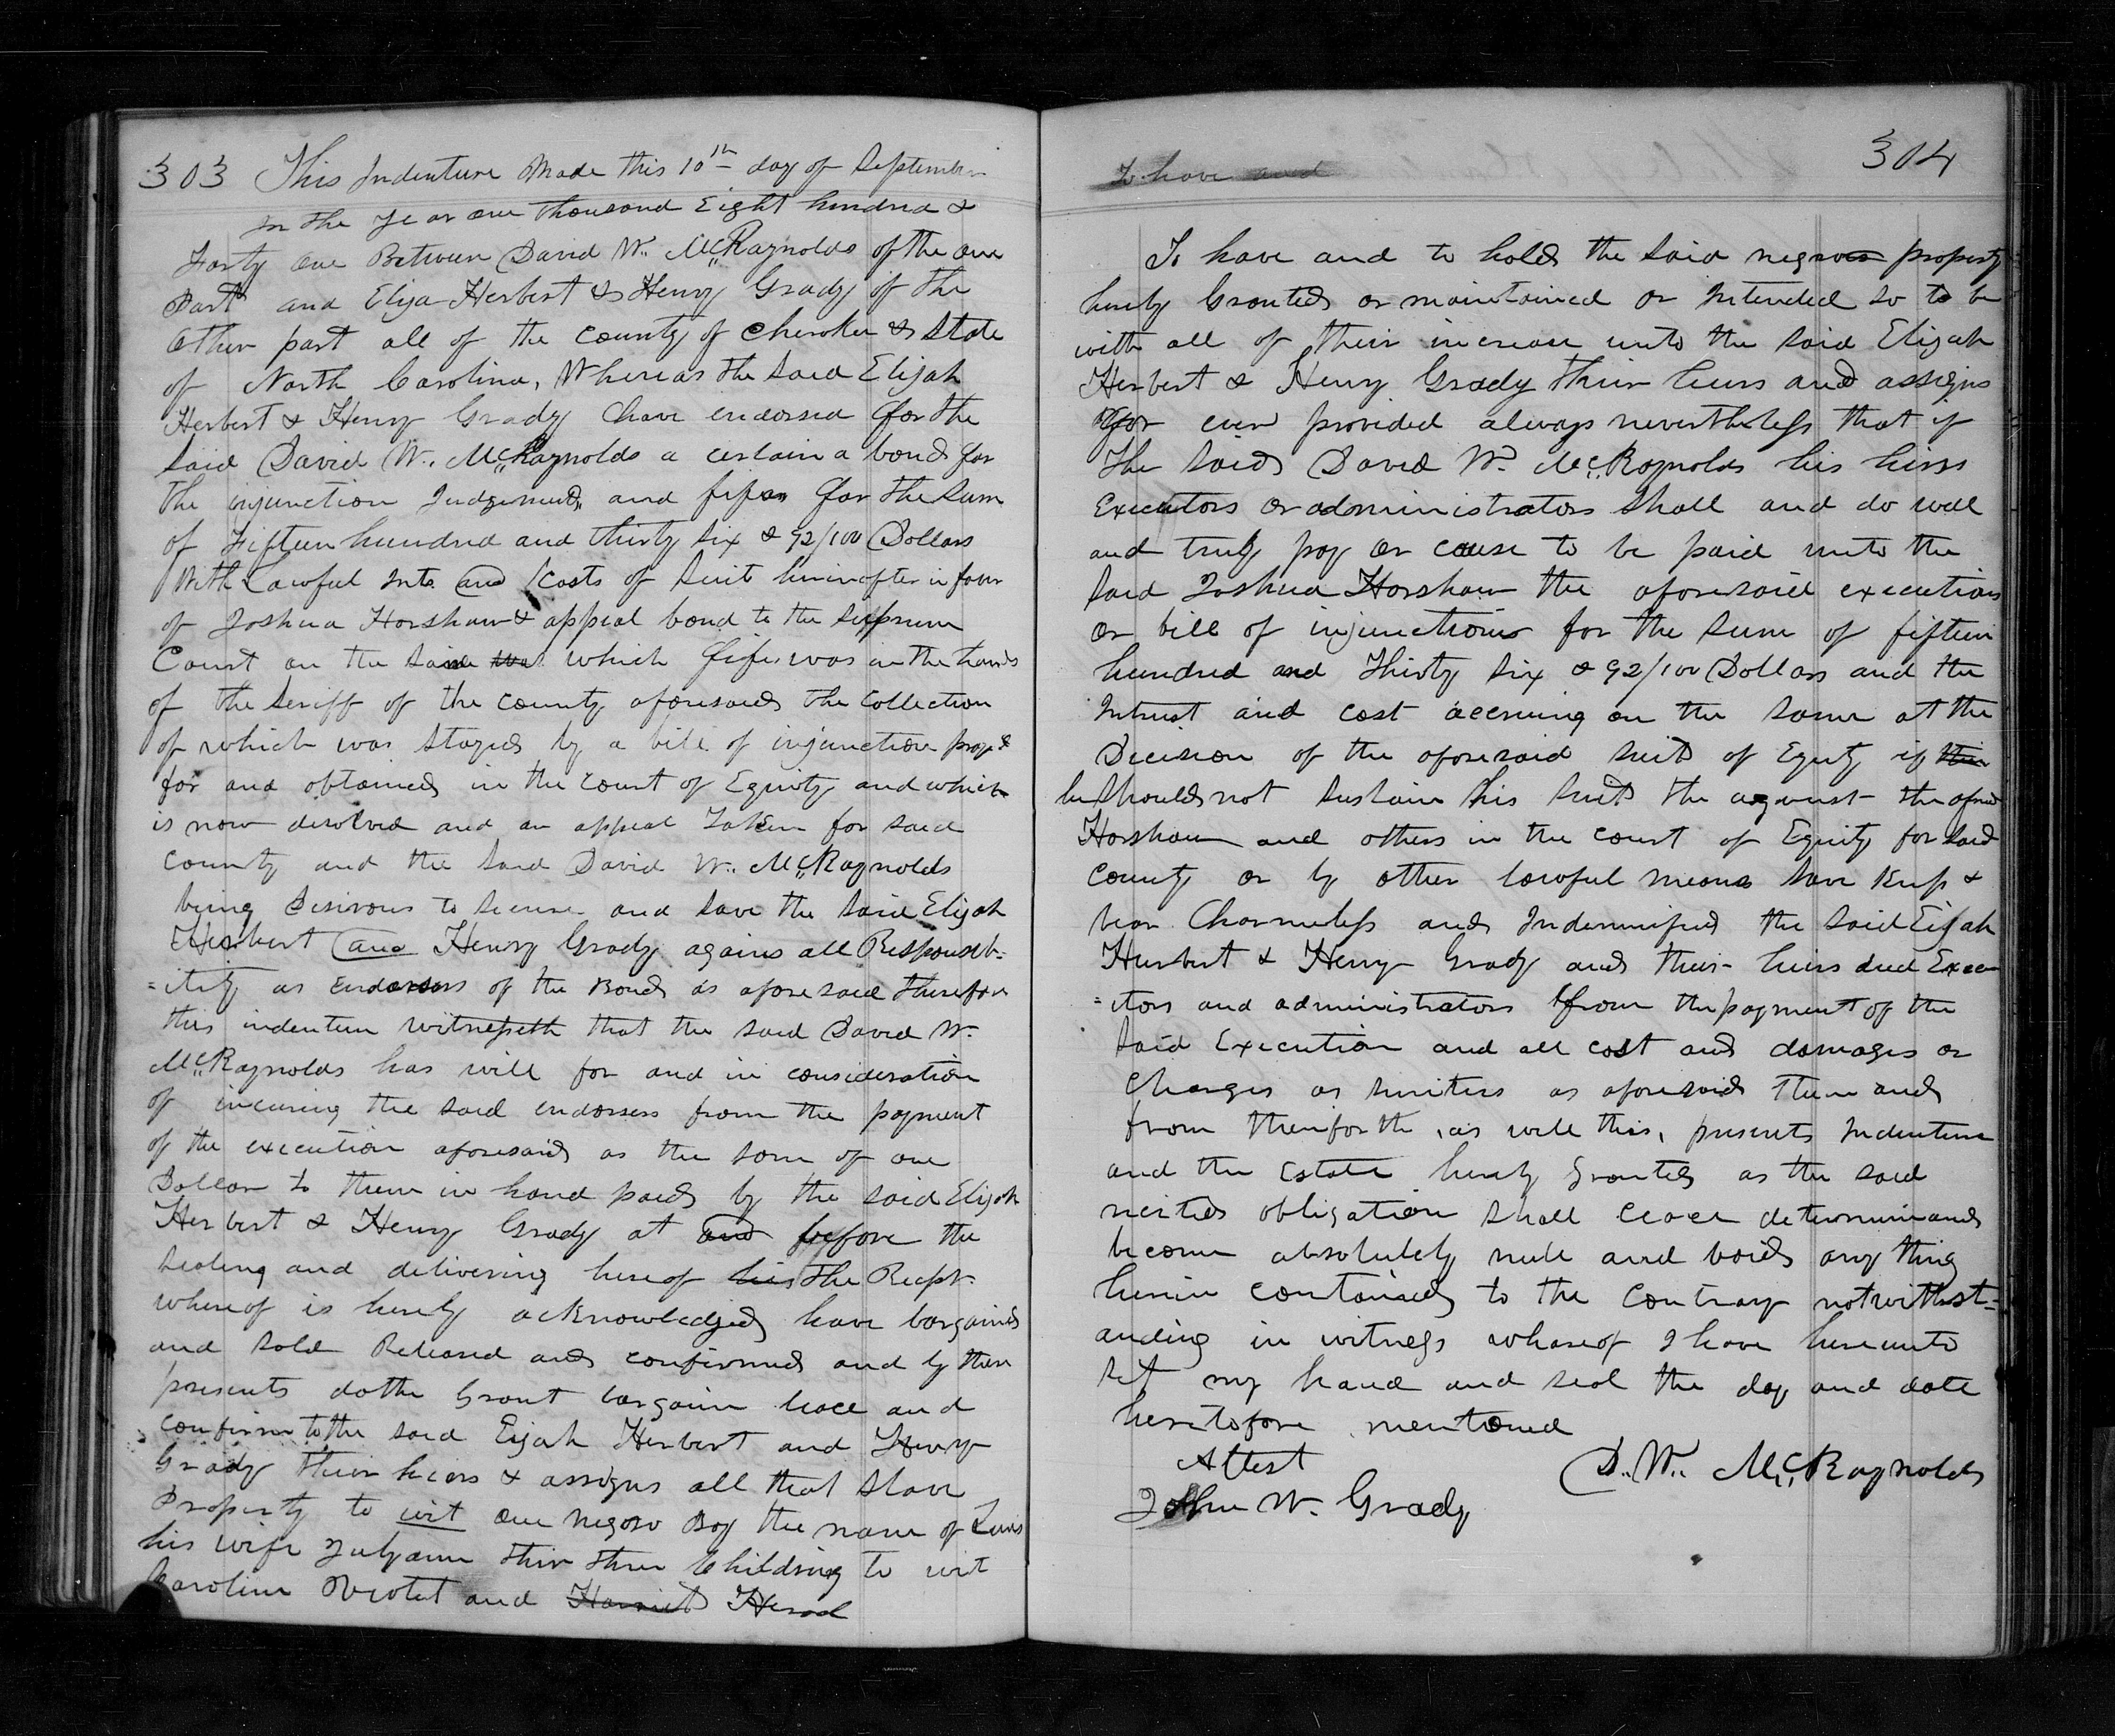 303 This Indenture Made this 10th day of September
in the year one thousand Eight hundred &
Forty one Between David W. McRaynolds of the one
Part and Elija Herbert & Henry Grady of the
Other part all of the County of Cherokee & State
of North Carolina, Whereas the Said Elijah
Herbert & Henry Grady have endorsed for the
Said David W. McRaynolds a certain a bond for
the injunction Judgement, and fifa for the Sum
of Fifteen hundred and thirty six & 92/100 Dollars
With Lawful Int. and Costs of Suit hereinafter in favr
of Joshua Horshaw & appeal bond to the Supprem
Court on the same which fifa was in the hands
of the Seriff of the County aforesaid the Collection
of which was stayed by a bill of injunction prayd
for and obtained in the Court of Equity and which
is now disolved and an appeal Taken for said
County and the Said David W. McRaynolds
being Desirous to Secure and Save the Said Elijah
Herbert and Henry Grady agains all Responsib-
=ility as Endorsers of the Bond as aforesaid therefore
this indenture witnesseth that the said David W.
McRaynolds has will for and in consideration
of incuring the said endorsers from the payment
of the execution aforesaid as the some of one
Dollar to them in hand paid by the said Elijah
Herbert & Henry Grady at and before the
Sealing and delivering hereof his the Recpt.
whereof is hereby acknowledged have bargained
and sold Released and confirmed and by these
presents dothe Grant bargain and
confirm to the said Eijah Herbert and Henry
Grady their hiers & assigns all that Slave
Property to wit one negro Boy the name of Luis
his wife Julyann thir three Childring to wit
Caroline Violet and Harriet Herod
To have and
304
To have and to hold the said negroes property
hereby Granted or maintained or Intended so to be
with all of their increase unto the said Elijah
Herbert & Henry Grady their heirs and assigns
for ever provided always nevertheless that if
the Said David W. McRaynolds his hirs
Executors or administrators shall and do well
and truly pay or cause to be paid unto the
Said Joshua Horshaw the aforesaid execution
or bill of injunction for the Sum of fifteen
hundred and Thirty Six & 92/100 Dollars and the
Intrust and cost accruing on the same at the
Decision of the aforesaid suit of Equity if
he should not Sustain his Suit the against the afsd
Horshaw and others in the court of Equity for Said
County or by other lawful means Save Keep &
bear Charmless and Indemnified the said Eijah
Hurbert & Henry Grady and their heirs and Execu
=tors and administrators from the payment of the
Said Execution and all cost and damages or
Charges as as aforesaid then and
from thenforth, as well this, presents Indenture
and the Estate hereby Granted as the said
recited obligation shall cease determin and
become absolutely null and void any thing
herein contained to the Contrary notwithst=
anding in witness whareof I have hereunto
set my hand and seal the day and date
heretofore mentoned
Attest
D. W. McRaynolds
John W. Grady